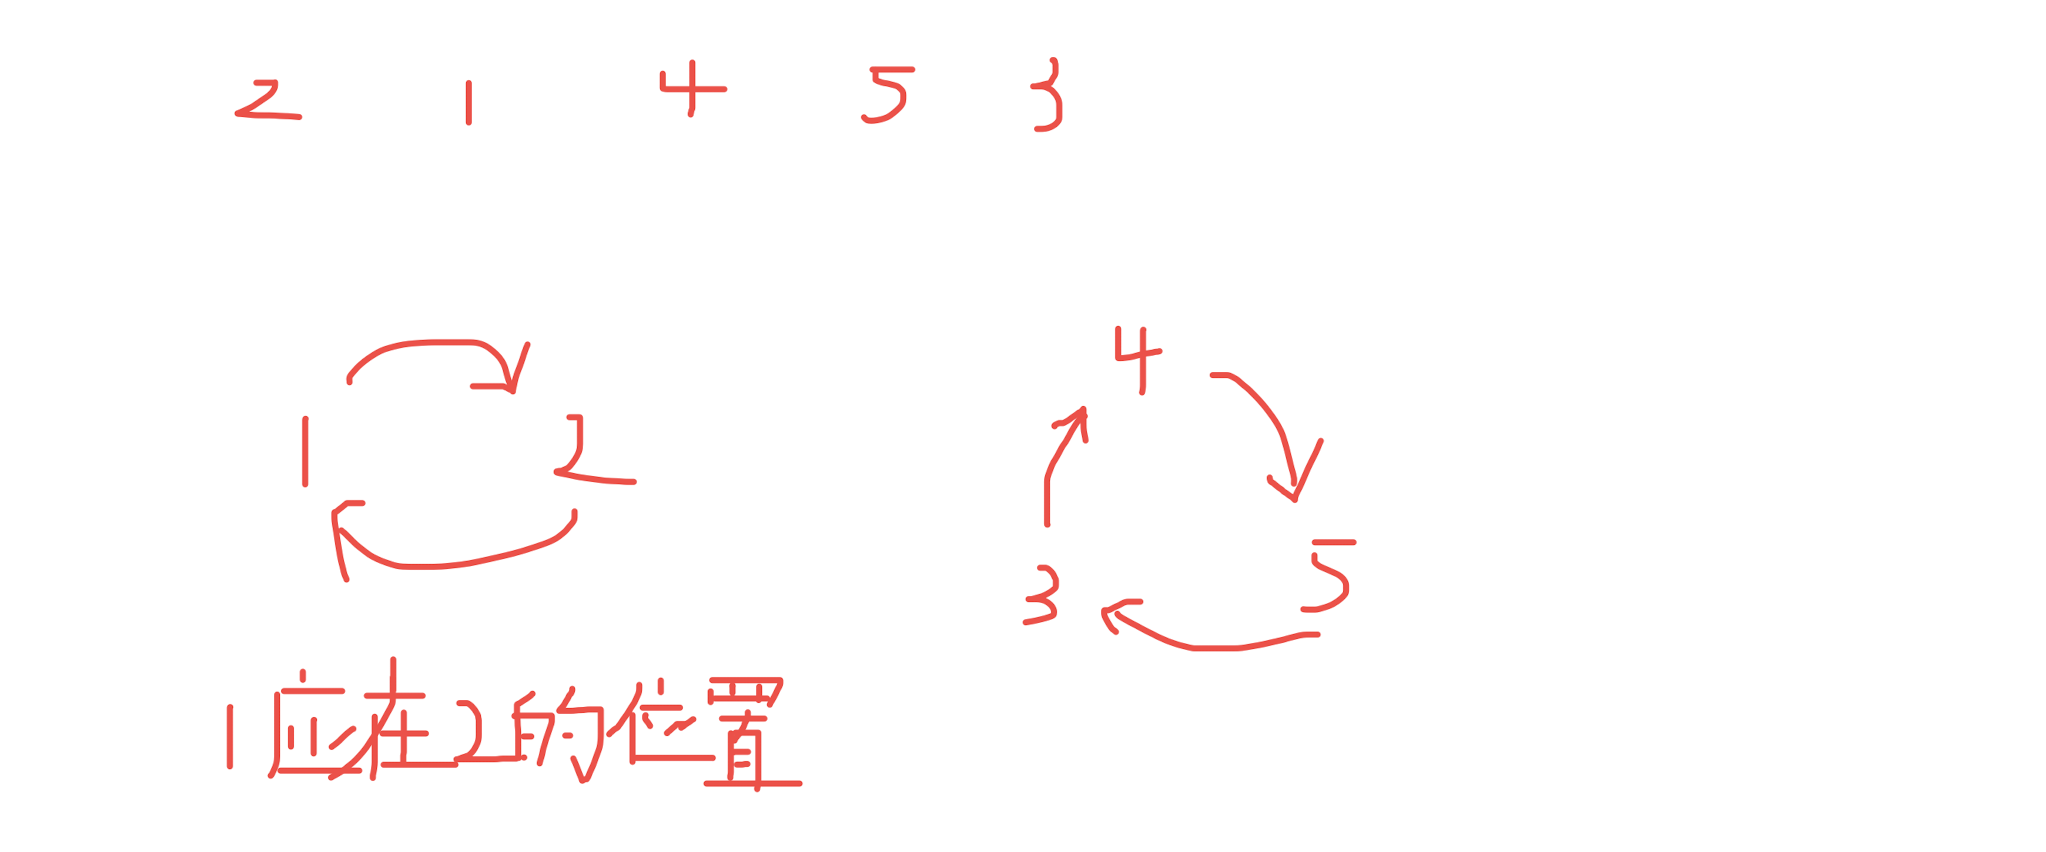 2 1 4 5 3
4
1 2
3 5
1应在2的位置